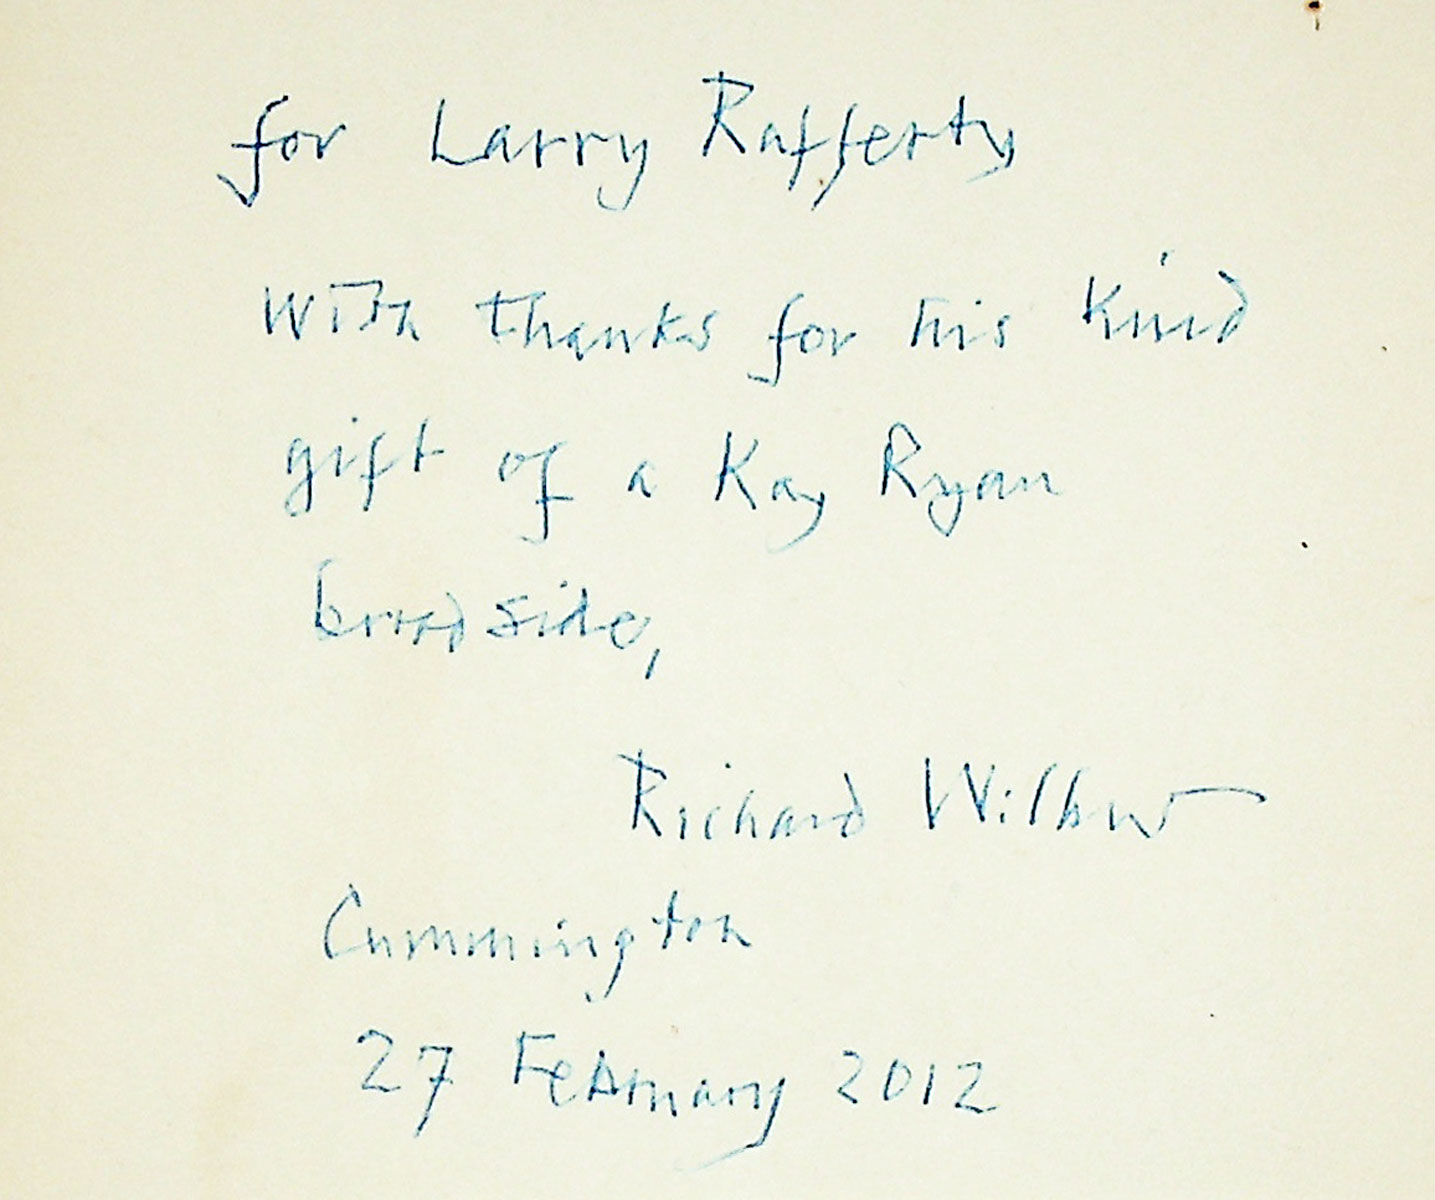 for Larry Rafferty
with thanks for his kind
gift of a Kay Ryan
broadside,
Richard Wilbur
Cummington
27 February 2012